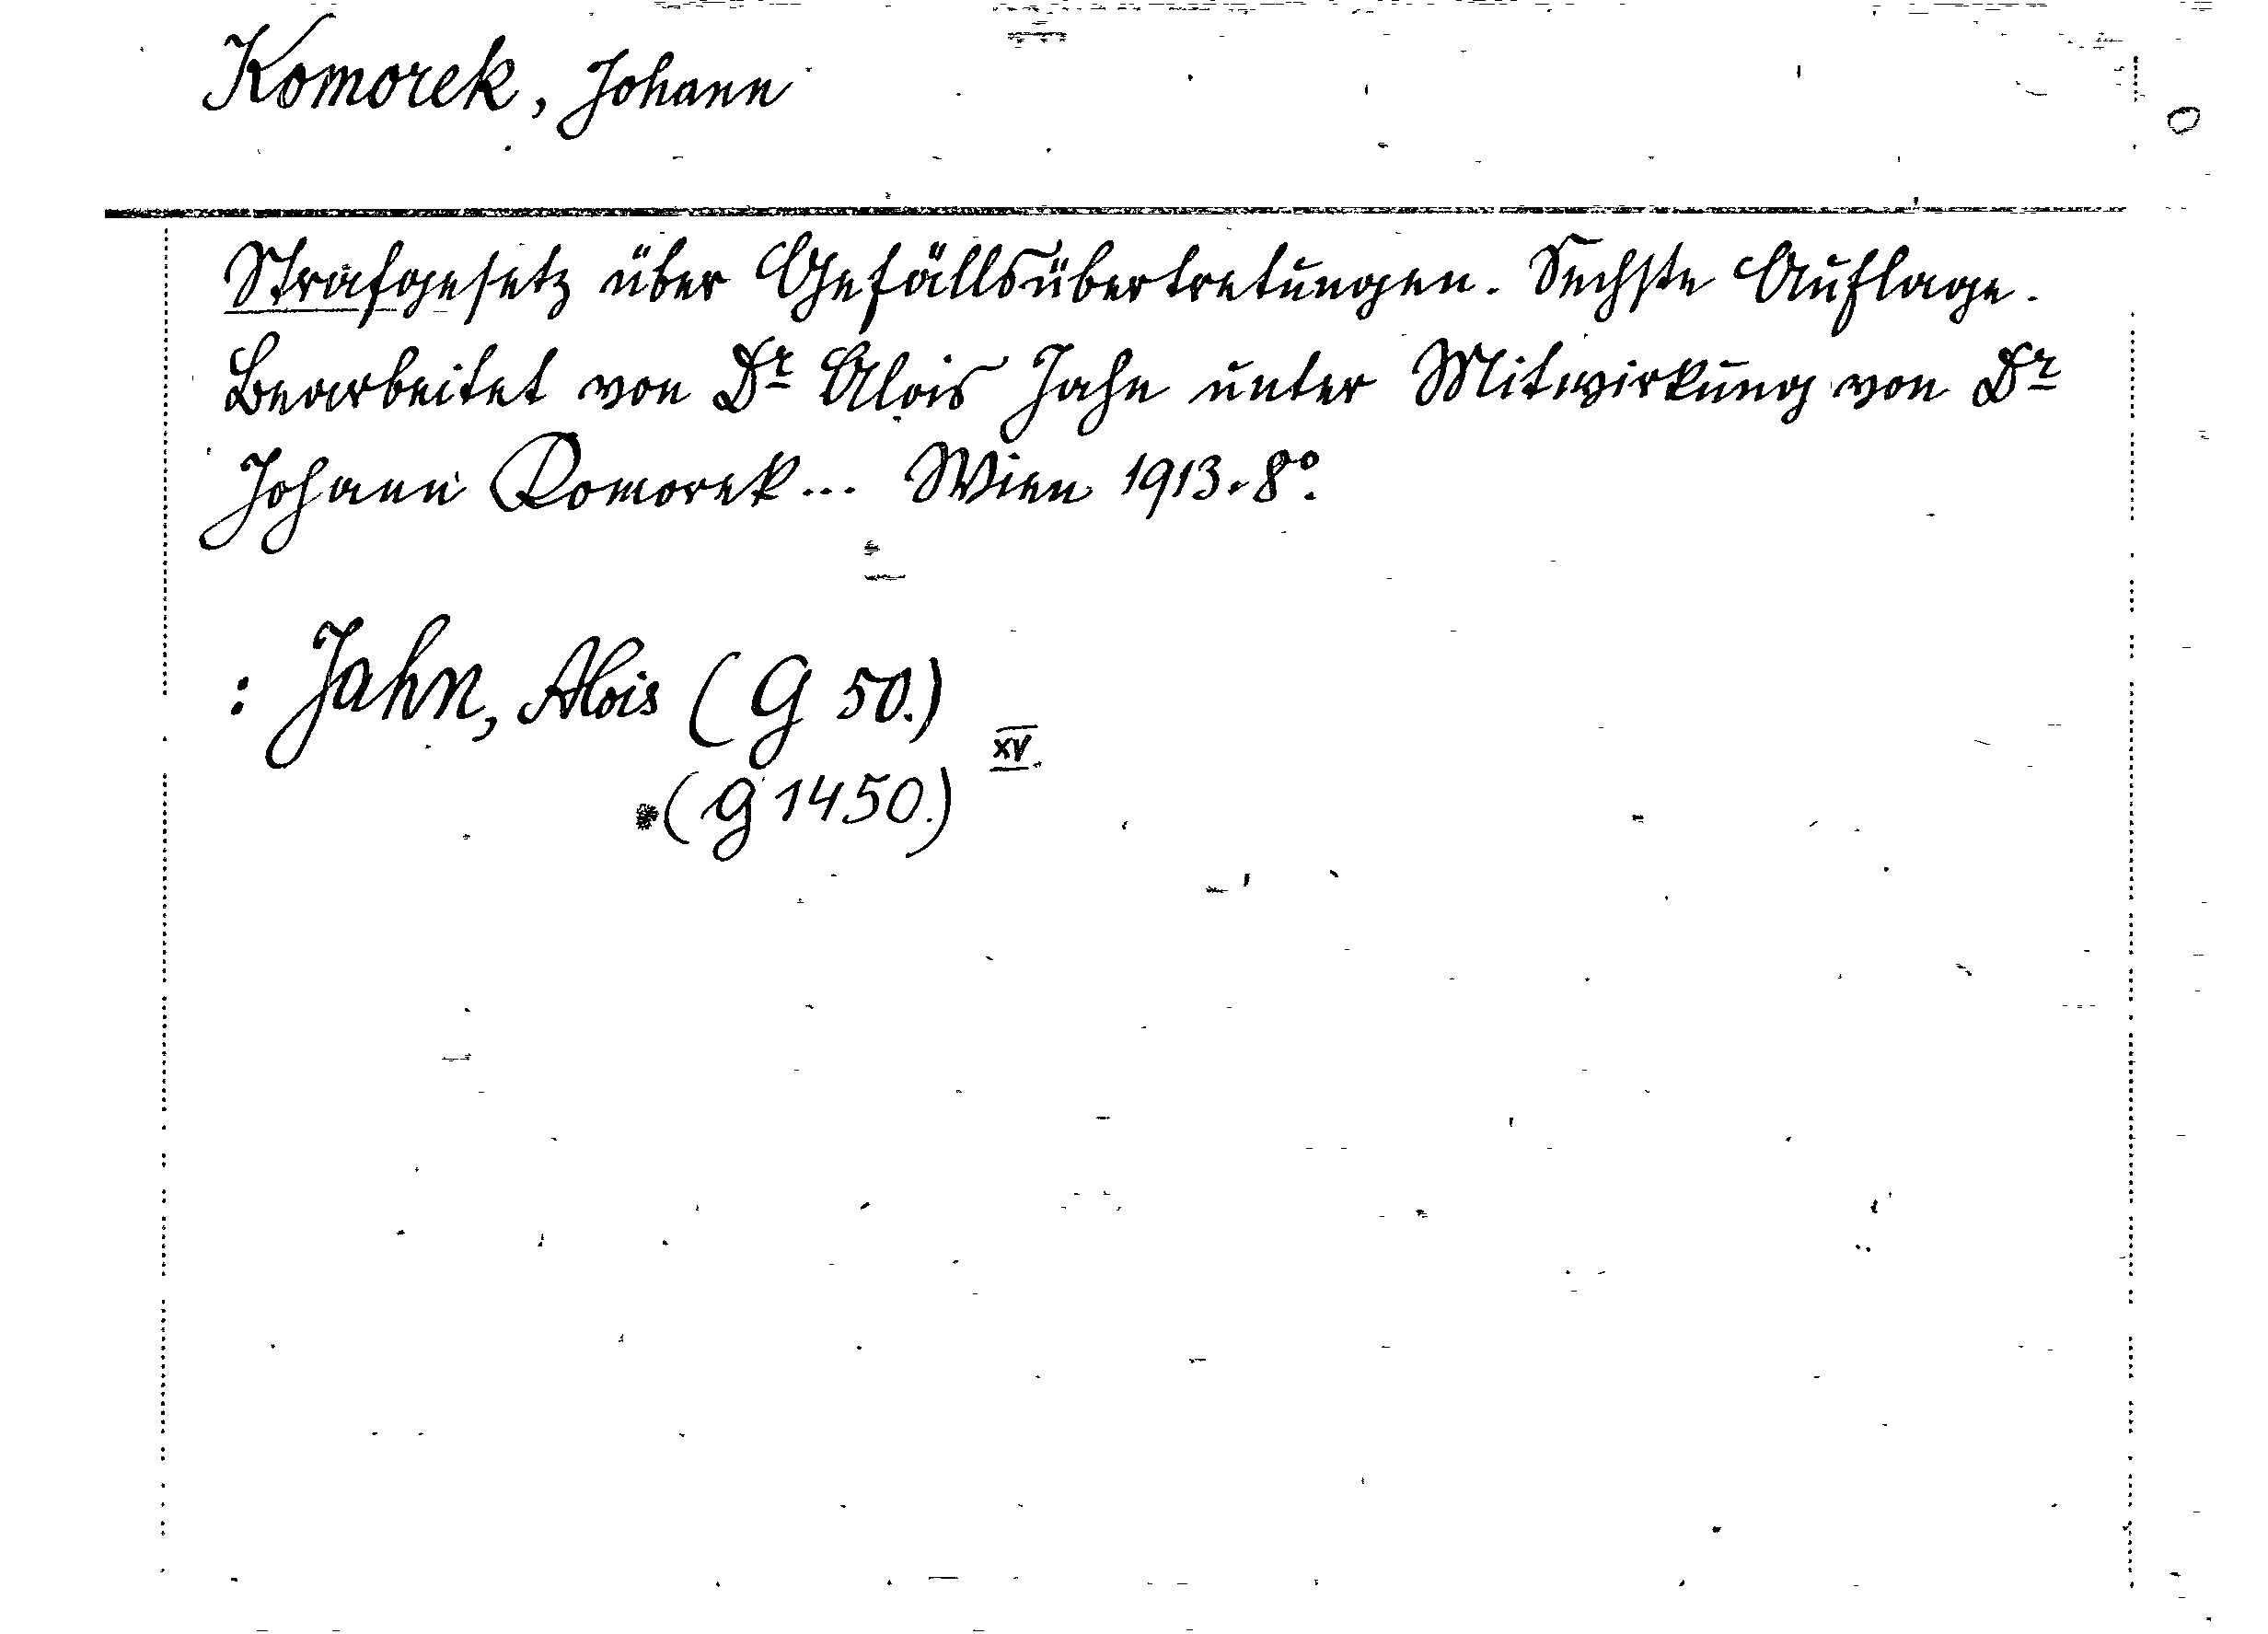 Komorek, Johann
Strafgesetz über Gefällsübertretungen. Sechste Auflage.
Bearbeitet von Dr Alois Jahn unter Mitwirkung von Dr
Johann Komorek... Wien 1913. 8°.
: Jahn, Alois (G 50.)
XV.
(G 1450.)